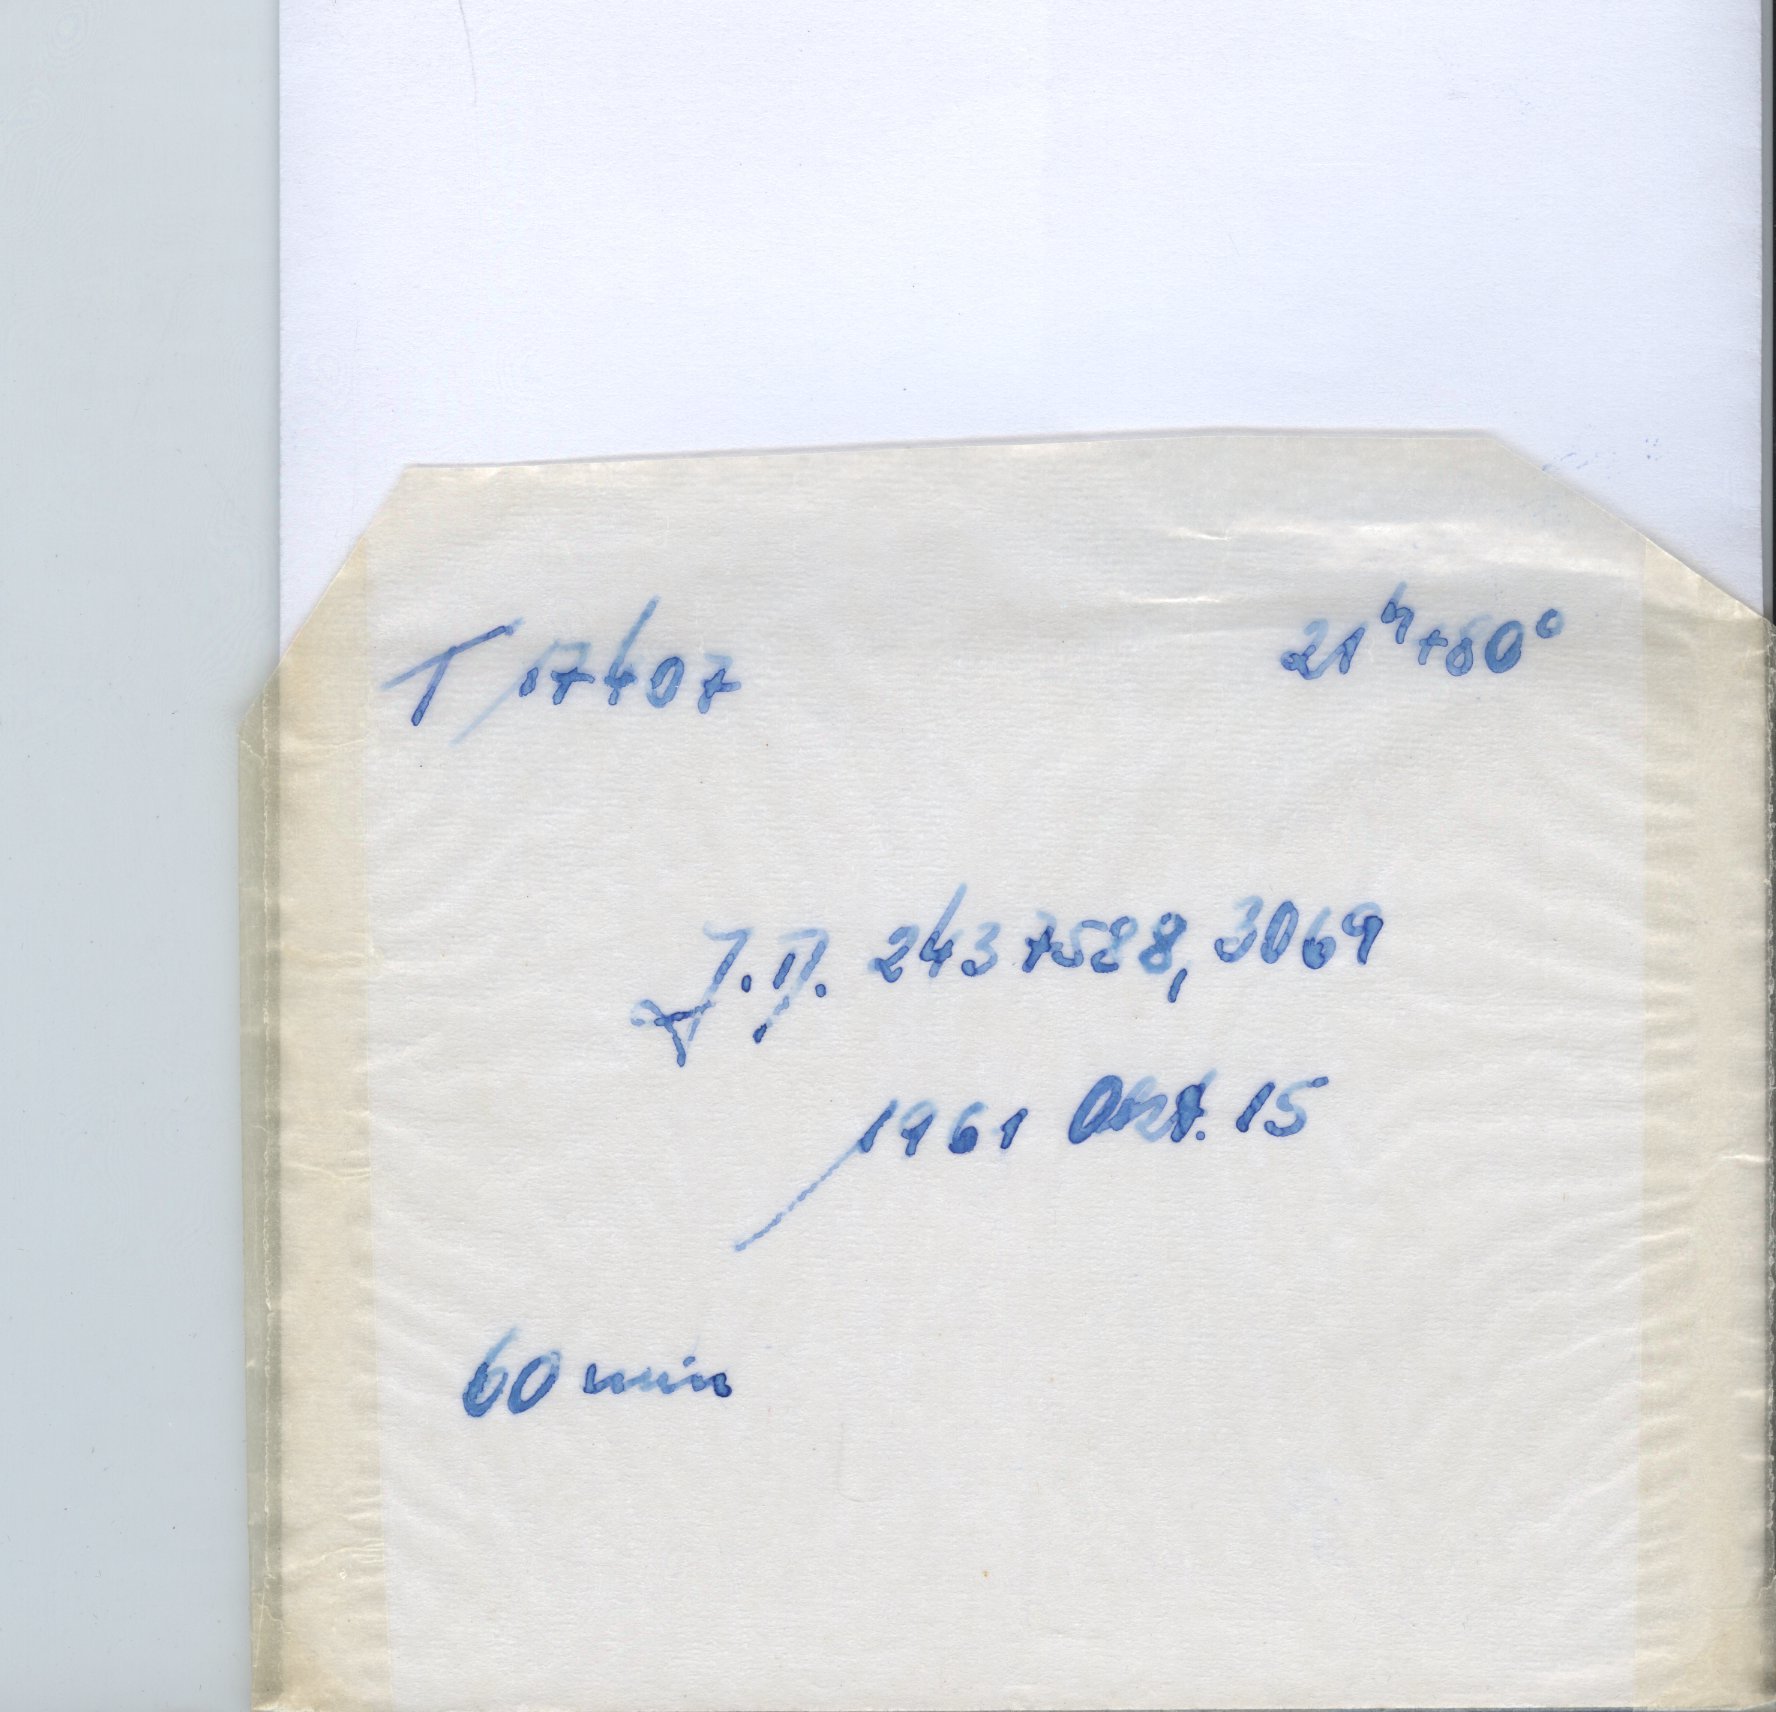 T 17407
21ʰ+60°
J.D. 2437588,3069
1961 Okt. 15
60 min